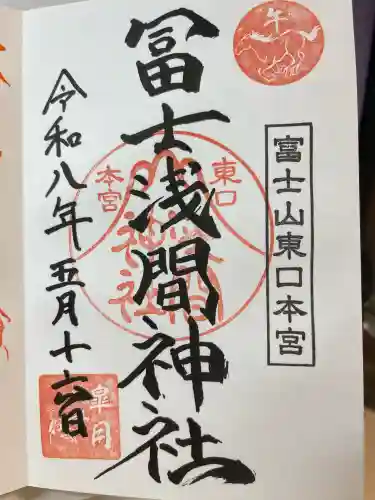 午
富士山東口本宮
冨士浅間神社
東口
本宮
令和八年五月十六日
皐月